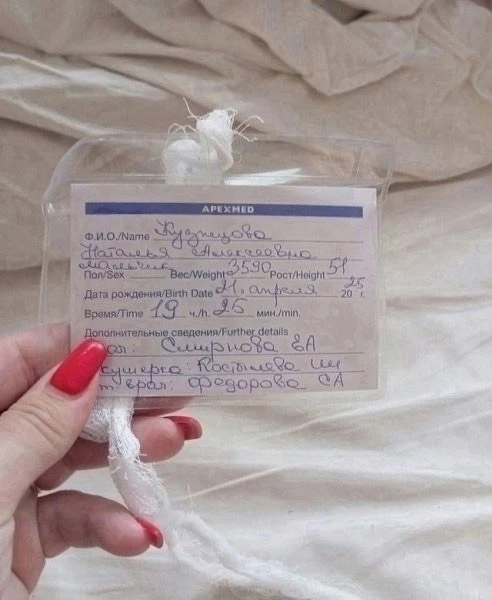 APEXMED
Ф.И.О./Name Кузнецова
Наталья Алексеевна
мальчик
Пол/Sex Вес/Weight 3590 Рост/Height 51
Дата рождения/Birth Date 21. апреля 2025 г.
Время/Time 19 ч/h. 25 мин./min.
Дополнительные сведения/Further details
Смирнова ЕА
кушерка: Костылева ИИ
врач: Федорова СА